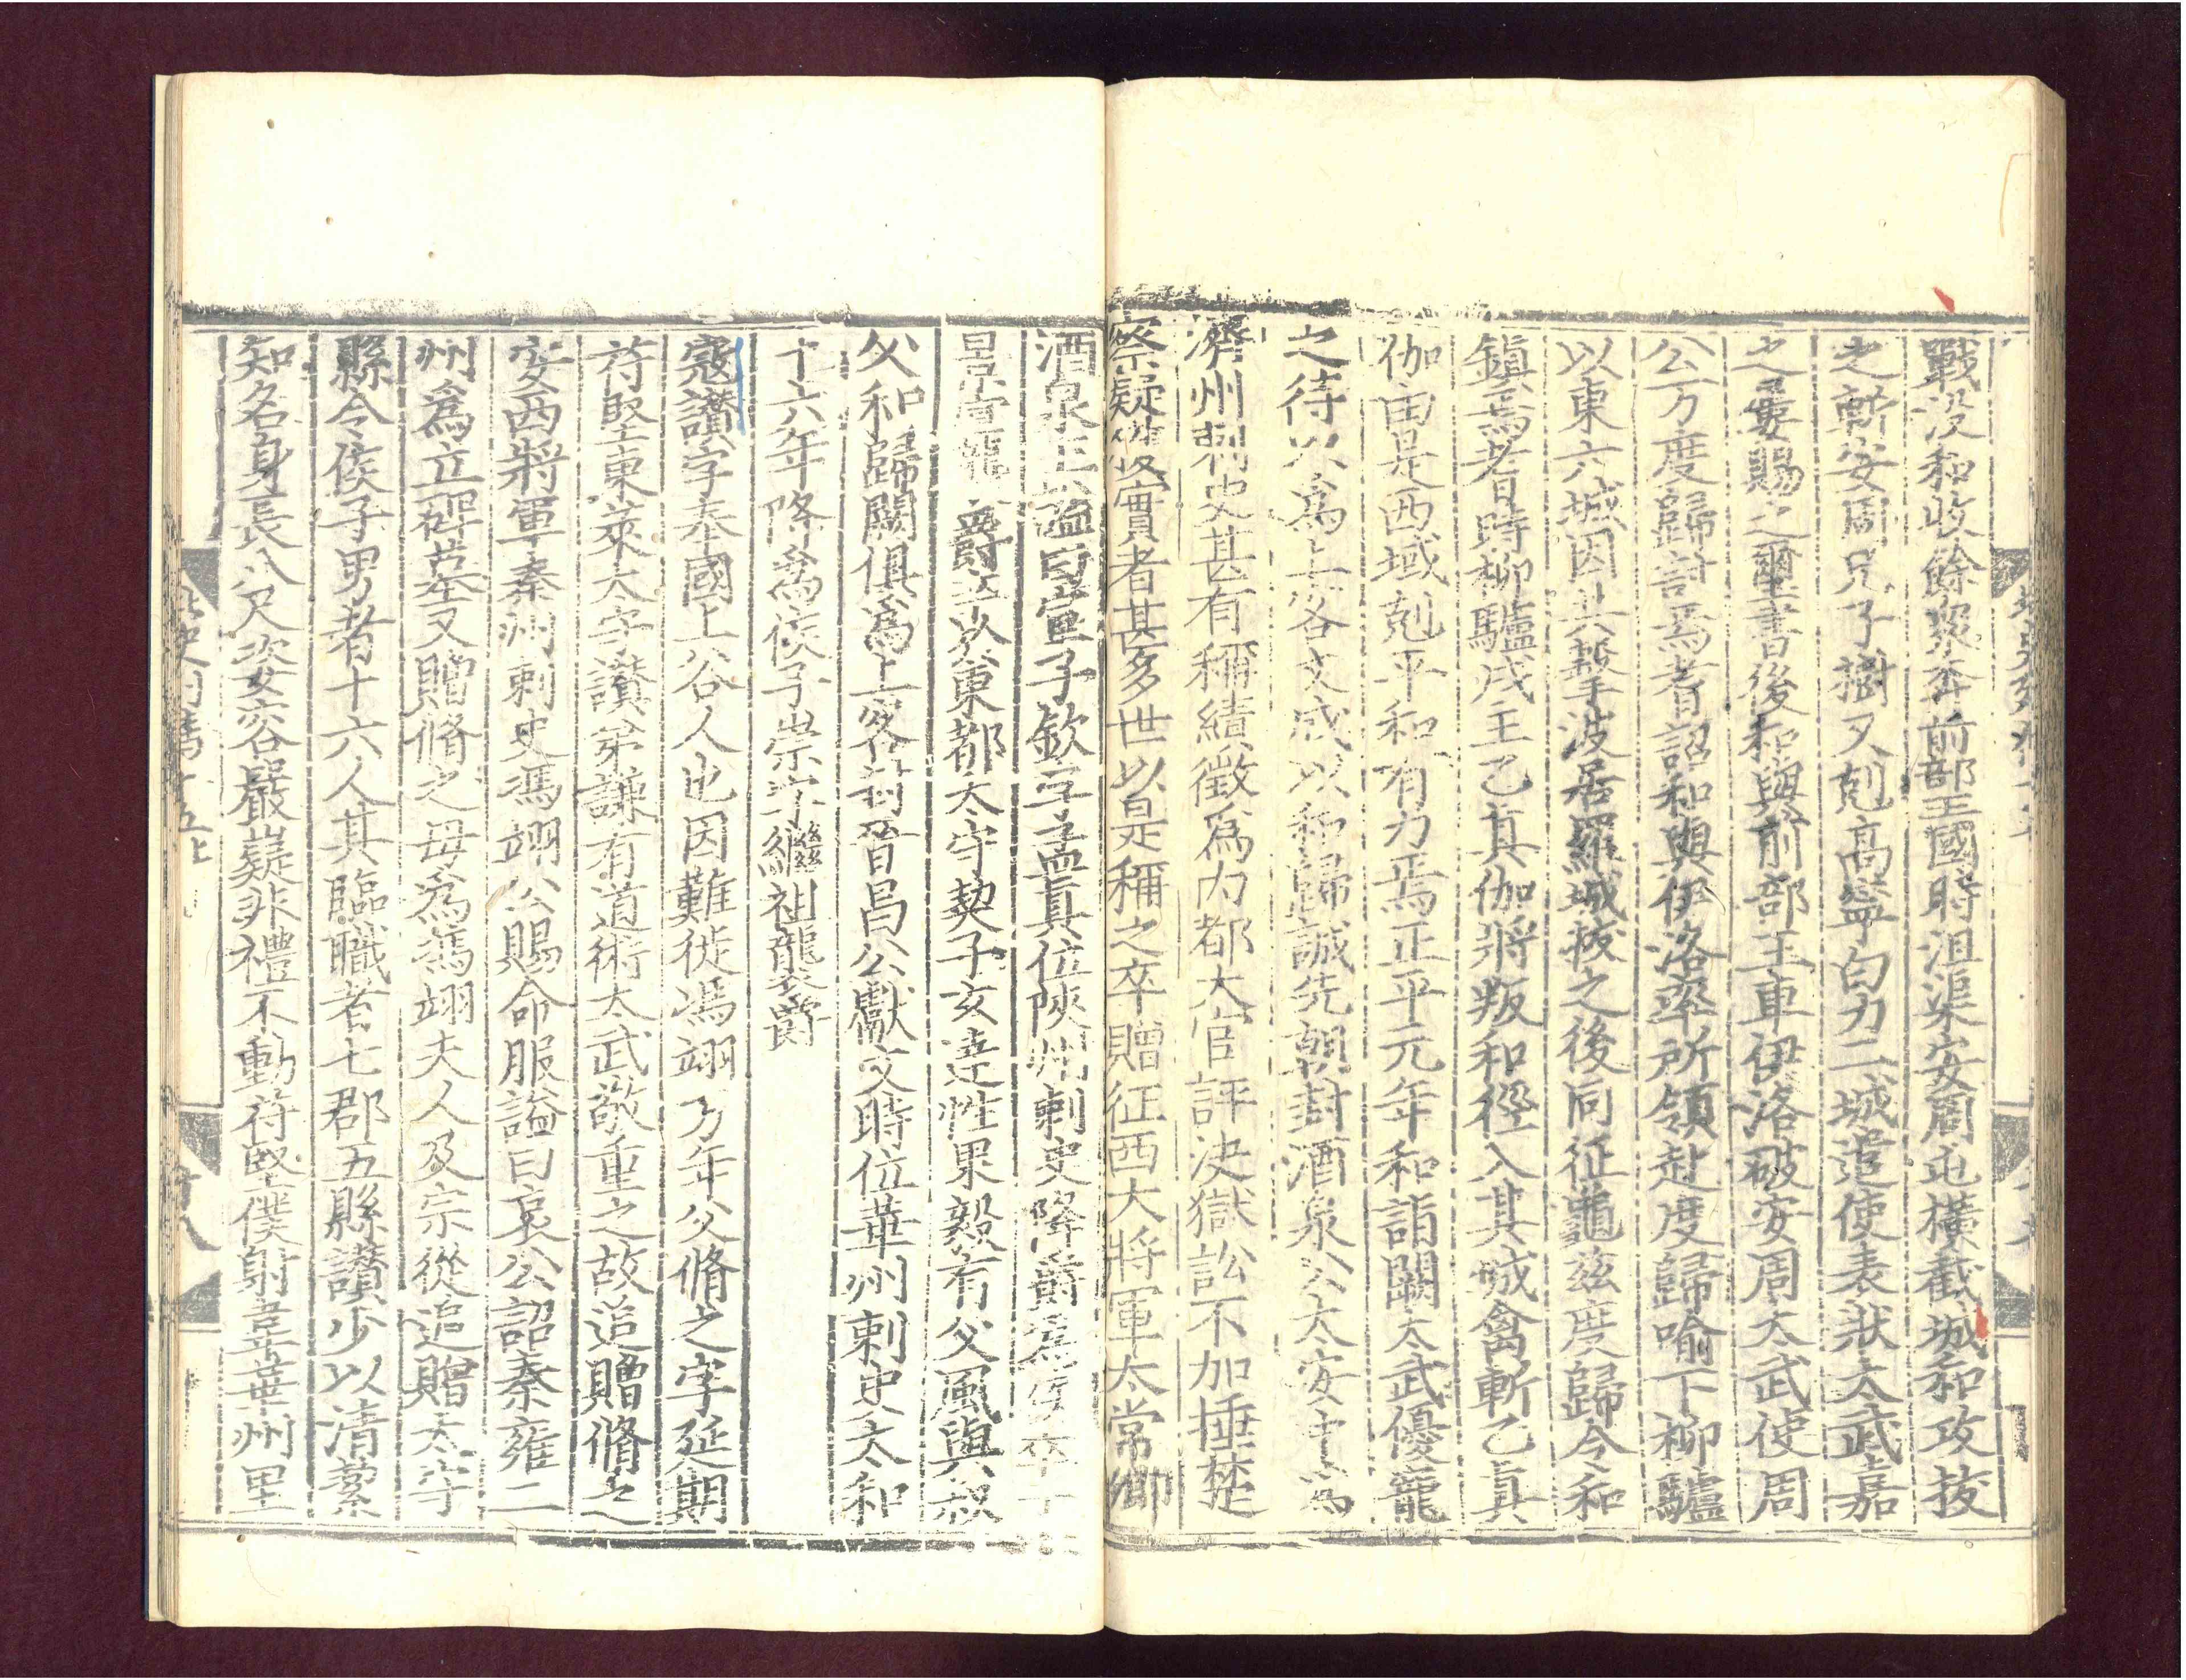 戰沒和收餘衆奔前部王國時沮渠安周屯橫截城和攻拔
之斬安周兄子樹又剋高寧白力二城遣使表狀太武嘉
之屢賜之璽書後和與前部王車伊洛破安周太武使周
公万度歸討焉耆詔和與伊洛率所領赴度歸喻下柳驢
以東六城因共擊波居羅城拔之後同征龜玆度歸令和
鎮焉耆時柳驢戍主乙真伽將叛和徑入其城禽斬乙真
伽由是西域剋平和有力焉正平元年和詣闕太武優寵
之待以爲上客文成以和歸誠先朝封酒泉公太安中爲
濟州刺史甚有稱績徵爲内都大官評決獄訟不加捶楚
察疑獲實者甚多世以是稱之卒贈征西大將軍太常卿
酒泉王謚曰宣子欽字孟真位陝州刺史降爵爲侯卒子
景宣襲爵 弟
父和歸闕俱爲上客封晉昌公獻文時位華州刺史太和
十六年降爲侯子崇字繼祖襲爵
寇讃字奉國上谷人也因難徙馮翊万年父脩之字延期
苻堅東萊太守讃弟謙有道術太武敬重之故追贈脩之
安西將軍秦州刺史馮翊公賜命服謚曰哀公詔秦雍二
州爲立碑墓又贈脩之母爲馮翊夫人及宗從追贈太守
縣令侯子男者十六人其臨職者七郡五縣讃少以清絜
知名身長八尺姿容嚴嶷非禮不動苻堅僕射韋華州里
北史列傳十五